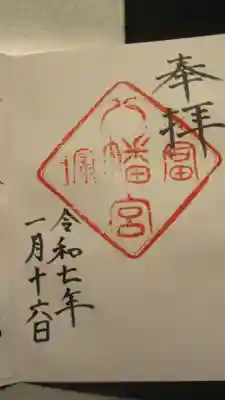 奉拝
富塚
八幡宮
令和七年
一月十六日